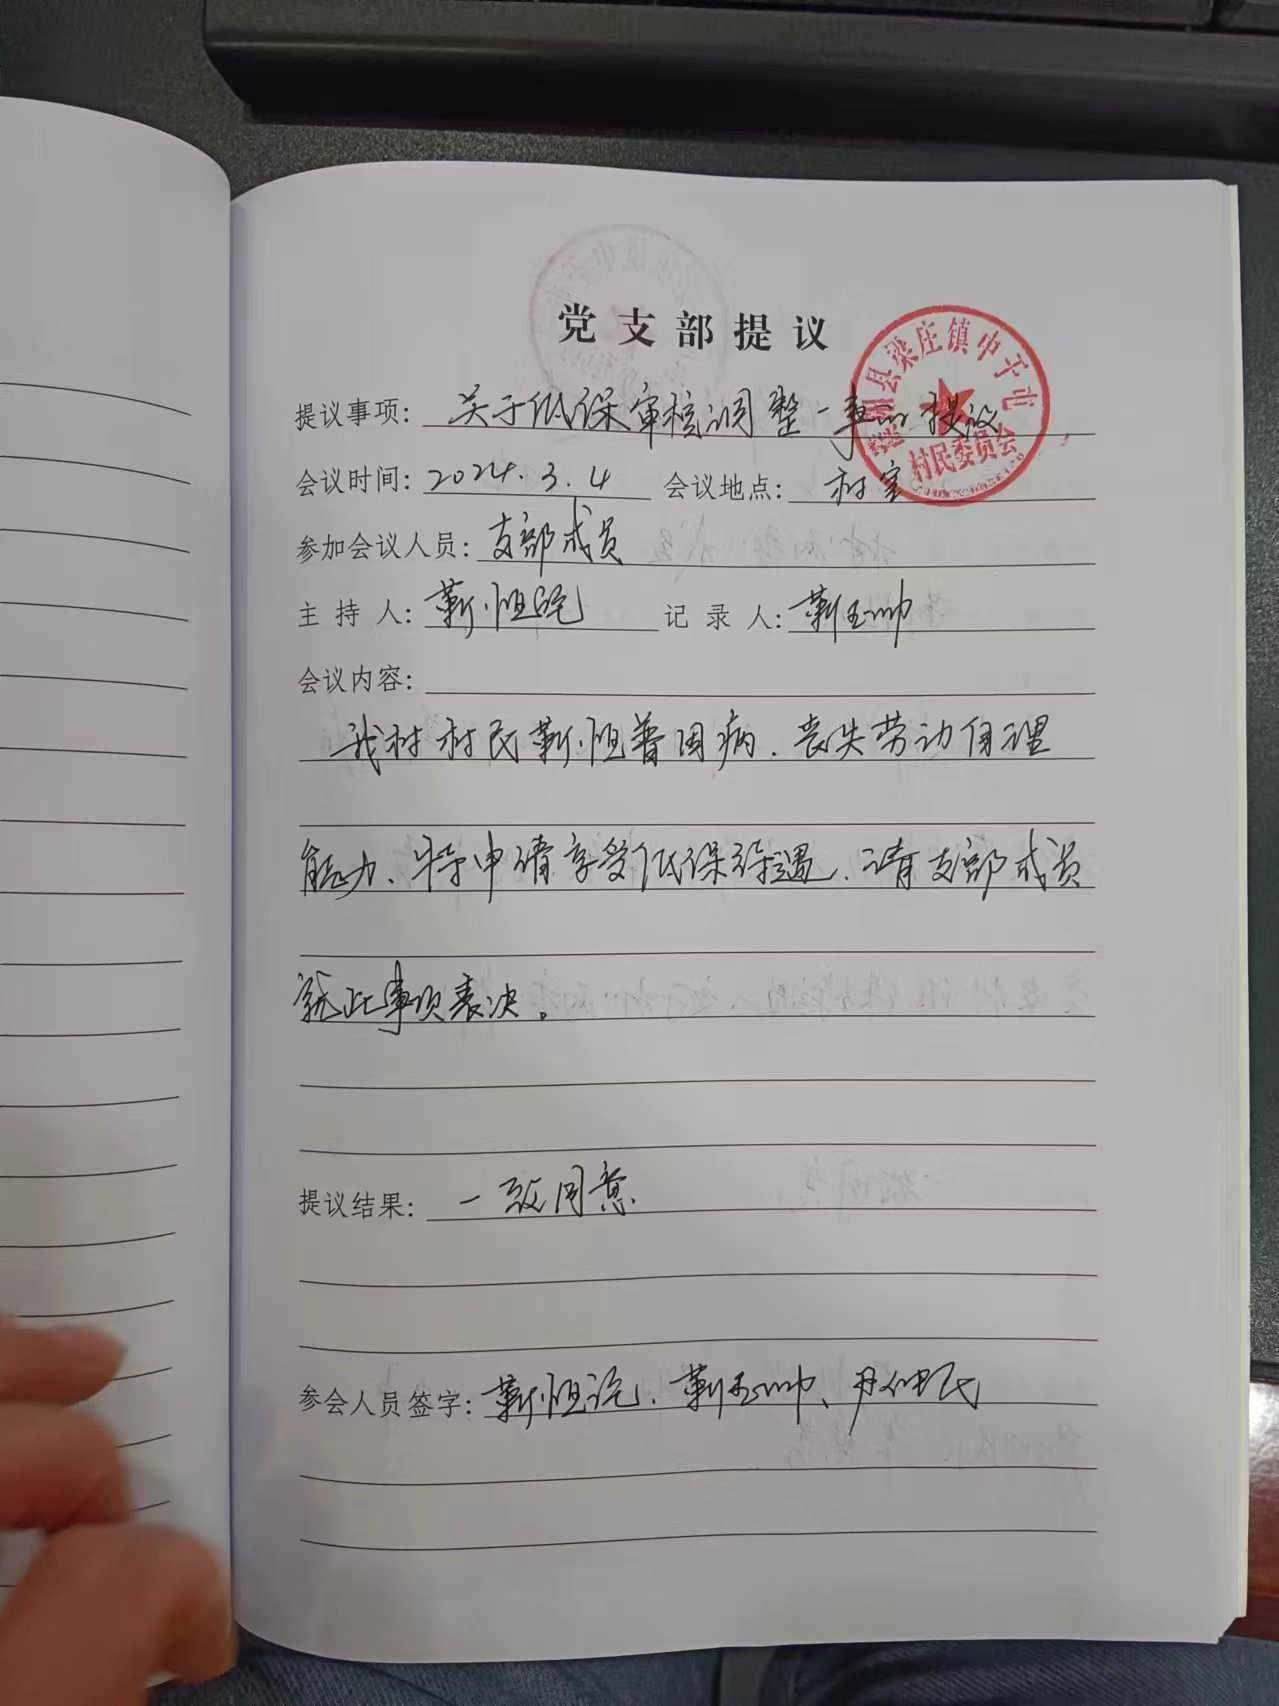 党支部提议
提议事项：关于低保审核调整一事的提议
县梁庄镇中平屯
村民委员会
会议时间：2024.3.4 会议地点：村室
参加会议人员：支部成员
主持人：靳恒 记录人：靳玉帅
会议内容：
我村村民靳恒普因病、丧失劳动自理
能力、特申请享受低保待遇、请支部成员
就此事项表决。
提议结果：一致同意
参会人员签字：靳恒、靳玉帅、尹仲民